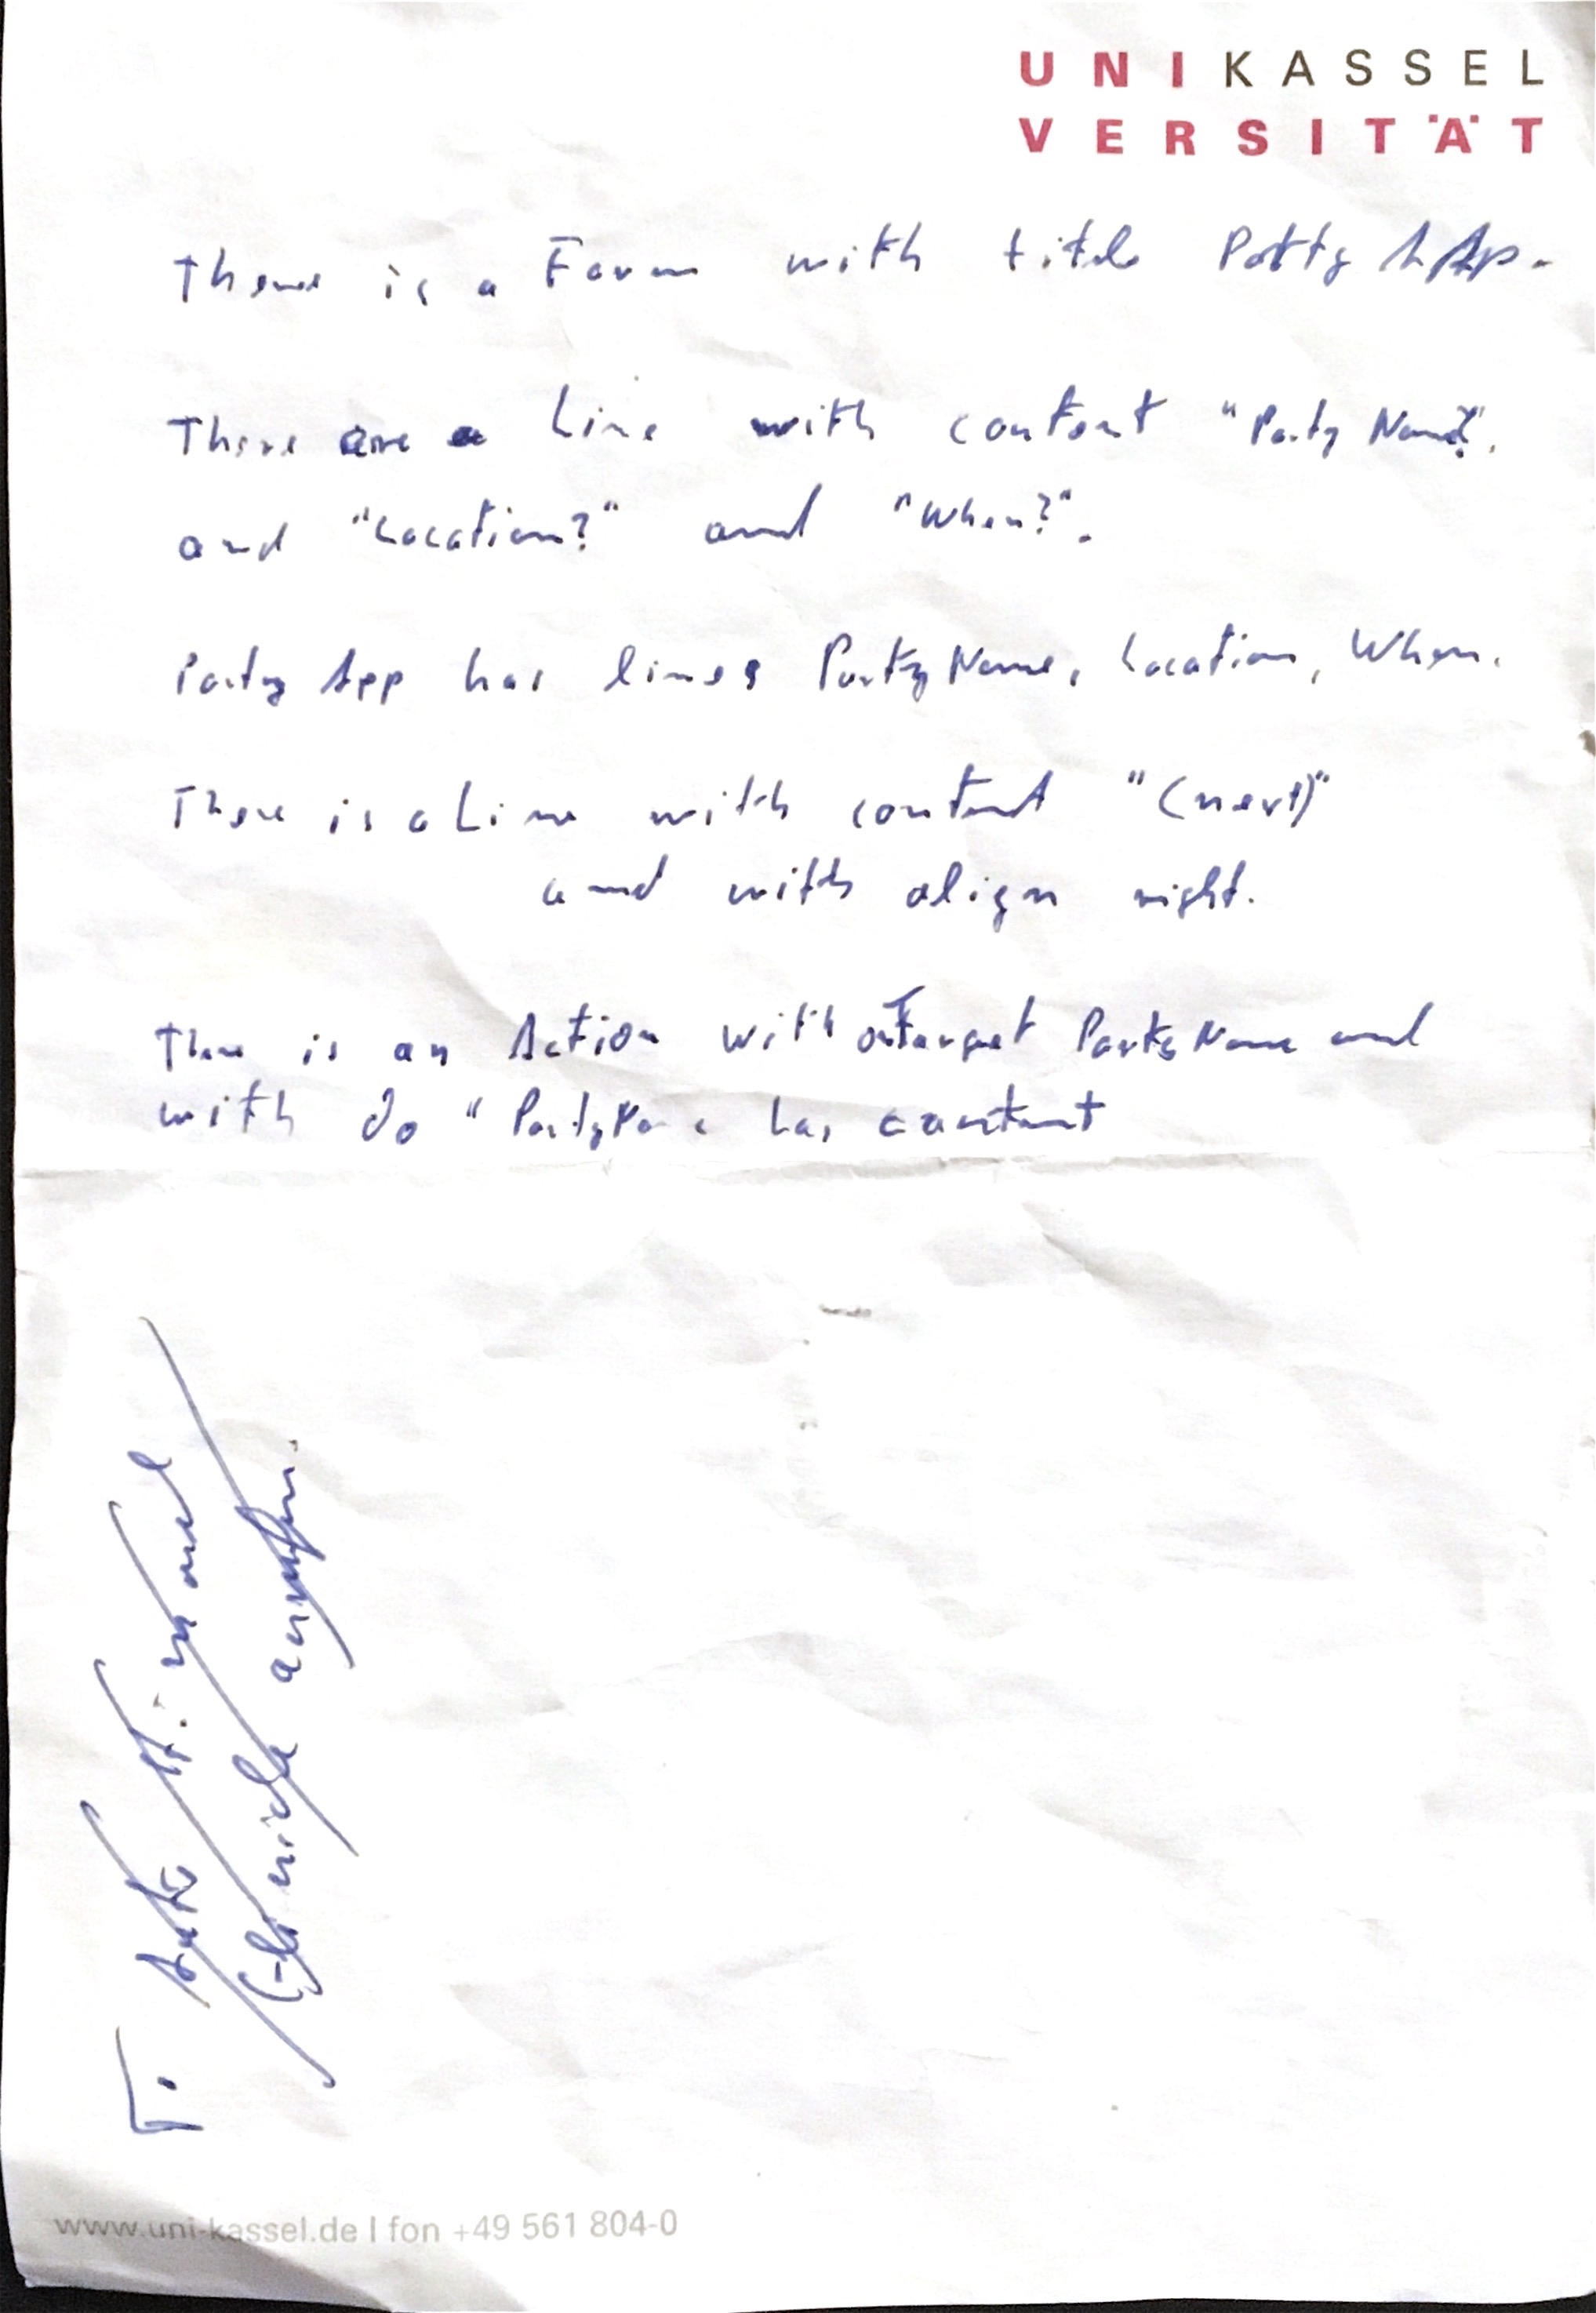 UNIKASSEL
VERSITÄT
There is a Form with title Party App.
There are a Line with content "Party Name?".
and "Location?" and "When?".
Party App has lines PartyName, Location, When.
There is a Line with content "(next)"
and with align right.
There is an Action with Target PartyName and
with do "PartyName has content
www.uni-kassel.de | fon +49 561 804-0